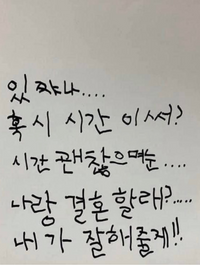 있쟈나....
혹시 시간 이써?
시간 괜찮으며눈....
나랑 결혼할래?....
내가 잘해줄게!!